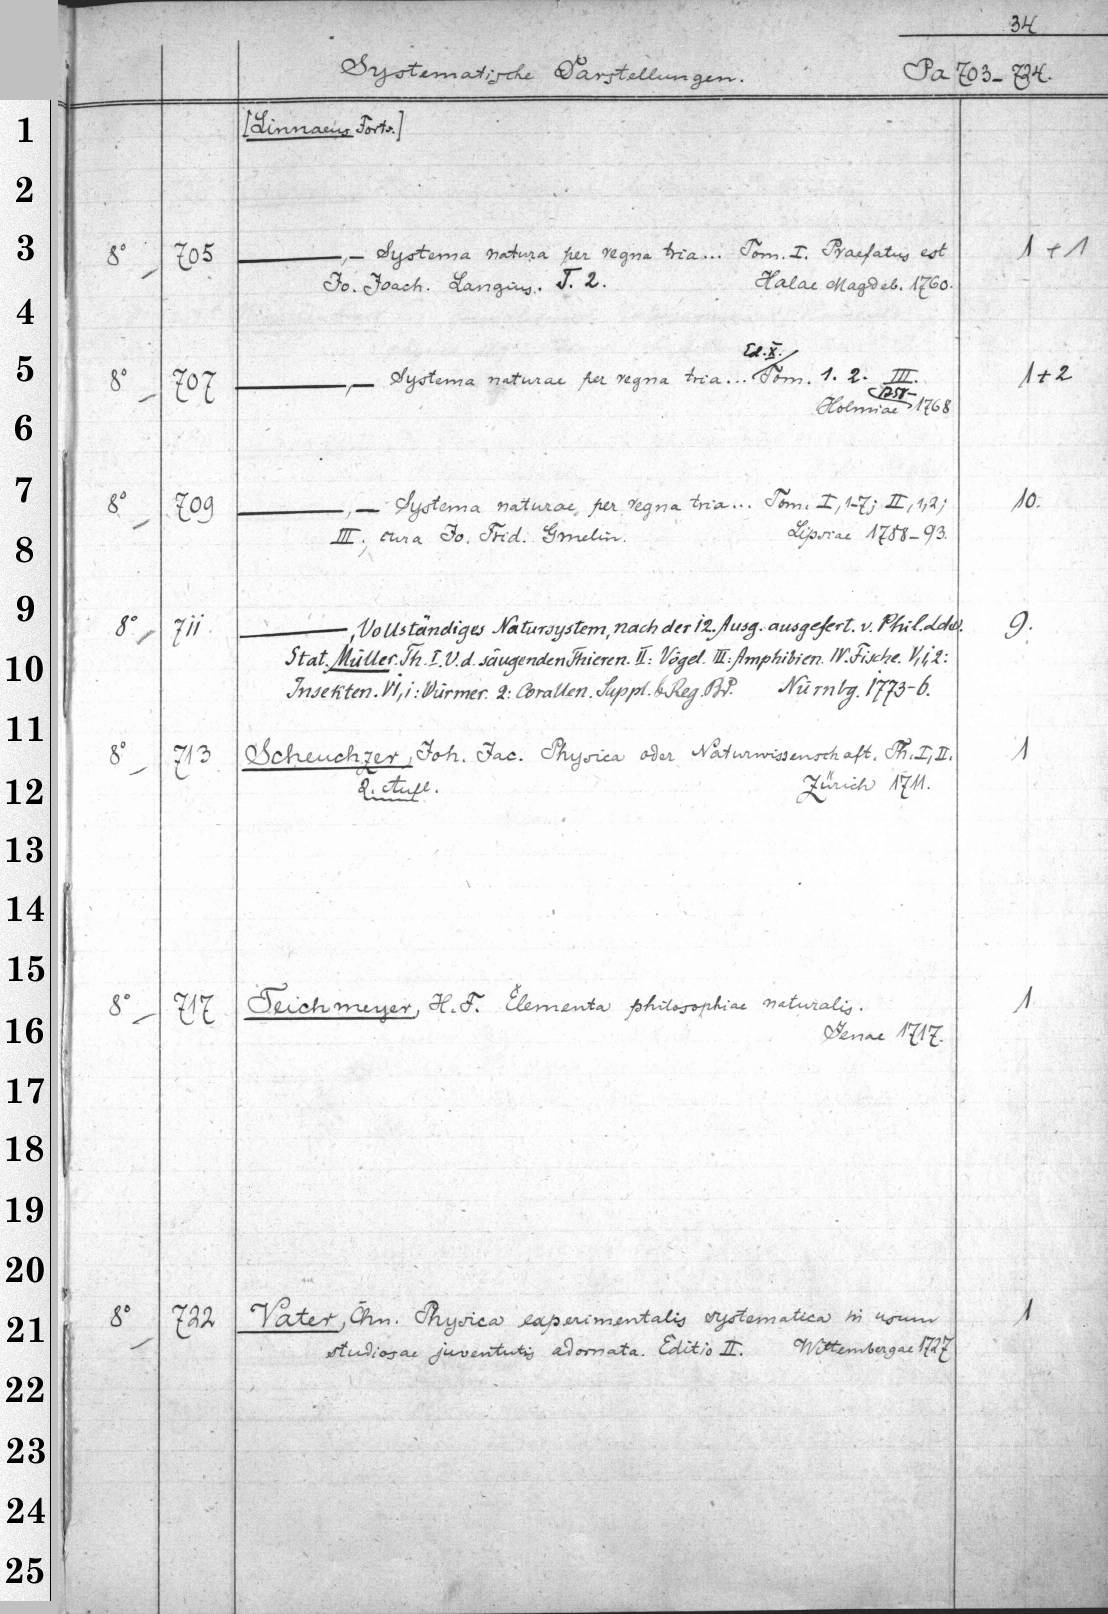 34
Systematische Darstellungen. Pa 703–724.
1 [Linnaeus Forts.]
2
3 8° 705 ———,— Systema natura per regna tria... Tom. I. Praefatus est 1 + 1
Jo. Joach. Langius. T. 2. Halae Magdeb. 1760.
4
Ed. X.
5 8° 707 ———,— Systema naturae per regna tria... Tom. 1. 2. III. 1 + 2
1758–
Holmiae 1768
6
7 8° 709 ———,— Systema naturae, per regna tria... Tom. I, 1-7; II, 1,2; 10.
8 III; cura Jo. Frid. Gmelin. Lipsiae 1788–93.
9 8° 711 ———, Vollständiges Natursystem, nach der 12. Ausg. ausgefert. v. Phil. 9.
10 Stat. Müller. Th. I. V. d. säugenden Thieren. II: Vögel. III: Amphibien. IV. Fische. V,1,2:
Insekten. VI,1: Würmer. 2: Corallen. Suppl. & Reg. Bd. Nürnbg. 1773–6.
11 8° 713 Scheuchzer, Joh. Jac. Physica oder Naturwissenschaft. Th. I, II. 1
12 2. Aufl. Zürich 1711.
13
14
15
8° 717 Teichmeyer, H. F. Elementa philosophiae naturalis. 1
16 Jenae 1717.
17
18
19
20
21 8° 722 Vater, Chn. Physica experimentalis systematica in usum 1
studiosae juventutis adornata. Editio II. Wittembergae 1727
22
23
24
25